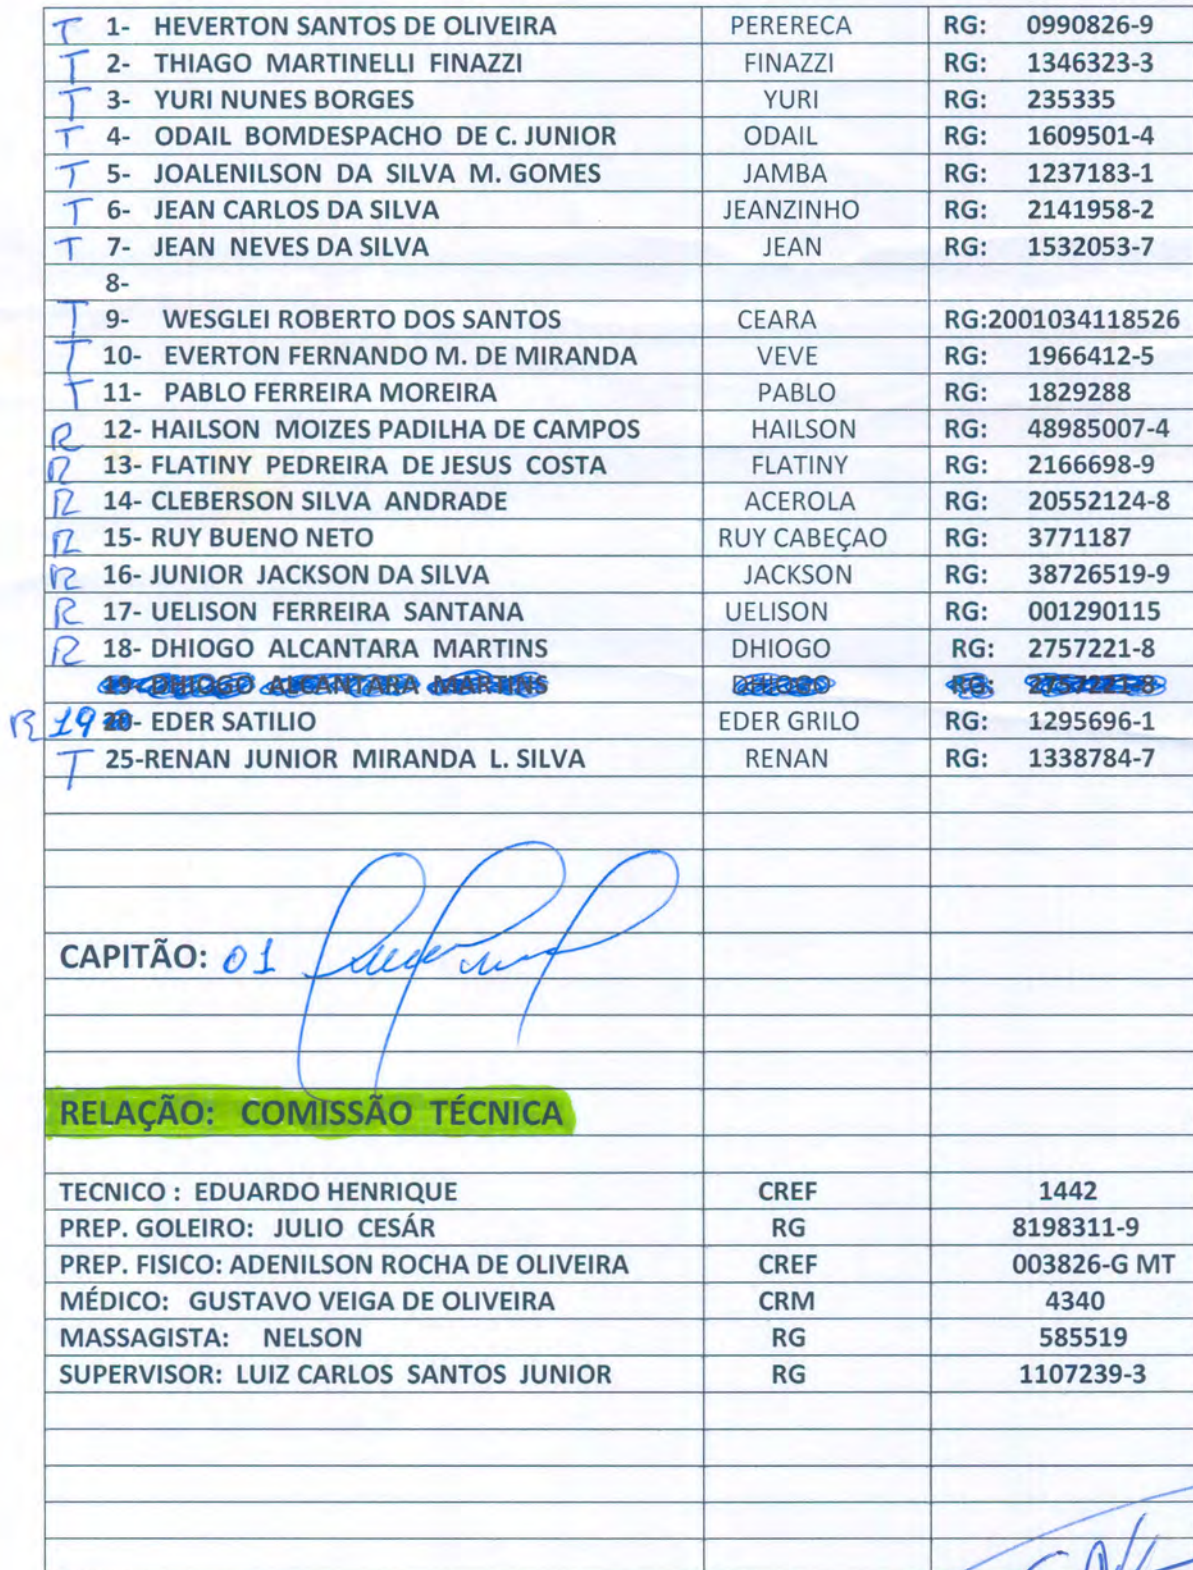 T 1- HEVERTON SANTOS DE OLIVEIRA PERERECA RG: 0990826-9
T 2- THIAGO MARTINELLI FINAZZI FINAZZI RG: 1346323-3
T 3- YURI NUNES BORGES YURI RG: 235335
T 4- ODAIL BOMDESPACHO DE C. JUNIOR ODAIL RG: 1609501-4
T 5- JOALENILSON DA SILVA M. GOMES JAMBA RG: 1237183-1
T 6- JEAN CARLOS DA SILVA JEANZINHO RG: 2141958-2
T 7- JEAN NEVES DA SILVA JEAN RG: 1532053-7
8-
T 9- WESGLEI ROBERTO DOS SANTOS CEARA RG:2001034118526
T 10- EVERTON FERNANDO M. DE MIRANDA VEVE RG: 1966412-5
T 11- PABLO FERREIRA MOREIRA PABLO RG: 1829288
R 12- HAILSON MOIZES PADILHA DE CAMPOS HAILSON RG: 48985007-4
R 13- FLATINY PEDREIRA DE JESUS COSTA FLATINY RG: 2166698-9
R 14- CLEBERSON SILVA ANDRADE ACEROLA RG: 20552124-8
R 15- RUY BUENO NETO RUY CABEÇAO RG: 3771187
R 16- JUNIOR JACKSON DA SILVA JACKSON RG: 38726519-9
R 17- UELISON FERREIRA SANTANA UELISON RG: 001290115
R 18- DHIOGO ALCANTARA MARTINS DHIOGO RG: 2757221-8
19- DHIOGO ALCANTARA MARTINS DHIOGO RG: 2757221-8
R 19 20- EDER SATILIO EDER GRILO RG: 1295696-1
T 25-RENAN JUNIOR MIRANDA L. SILVA RENAN RG: 1338784-7
CAPITÃO: 01
RELAÇÃO: COMISSÃO TÉCNICA
TECNICO : EDUARDO HENRIQUE CREF 1442
PREP. GOLEIRO: JULIO CESÁR RG 8198311-9
PREP. FISICO: ADENILSON ROCHA DE OLIVEIRA CREF 003826-G MT
MÉDICO: GUSTAVO VEIGA DE OLIVEIRA CRM 4340
MASSAGISTA: NELSON RG 585519
SUPERVISOR: LUIZ CARLOS SANTOS JUNIOR RG 1107239-3